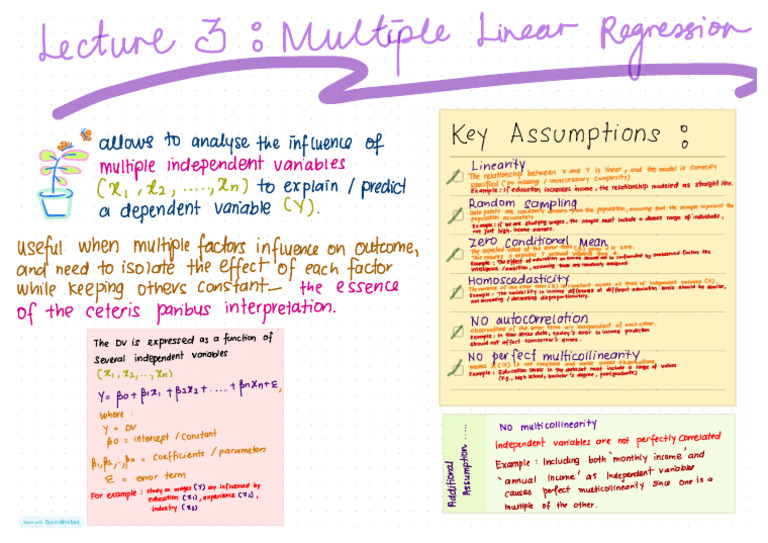 Lecture 3 : Multiple Linear Regression
allows to analyse the influence of
multiple independent variables
(x1, x2, ....., xn) to explain / predict
a dependent variable (Y).
useful when multiple factors influence on outcome,
and need to isolate the effect of each factor
while keeping others constant — the essence
of the ceteris paribus interpretation.
The DV is expressed as a function of
several independent variables
(x1, x2, .., xn)
Y = β0 + β1x1 + β2x2 + ..... + βnxn + ε,
where :
Y = DV
β0 = intercept / constant
β1, β2, .., βn = coefficients / parameters
ε = error term
For example : study on wages (Y) are influenced by
education (x1), experience (x2),
industry (x3)
Key Assumptions :
Linearity
The relationship between X and Y is linear, and the model is correctly
specified (no missing / unnecessary complexity)
Example : if education increases income, the relationship modeled as straight line.
Random sampling
Data points are randomly drawn from the population, ensuring that the sample represent the
population accurately.
Example : if we are studying wages, the sample must include a diverse range of individuals,
not just high-income earners.
Zero conditional Mean
The expected value of the error term is zero.
Example : The effect of education on income should not be confounded by unobserved factors like
intelligence / motivation, assuming these are randomly assigned.
Homoscedasticity
The variance of the error term is constant across all levels of independent variable (X).
Example : The variability in income differences at different education levels should be similar,
not increasing / decreasing disproportionately.
NO autocorrelation
observations of the error term are independent of each other.
Example : In time series data, today's error in income prediction
should not affect tomorrow's errors.
NO perfect multicollinearity
means X is not constant and varies across observations.
Example : Education level in the dataset must include a range of values
(e.g., high school, bachelor's degree, postgraduate)
Additional
Assumption .....
NO multicollinearity
Independent variables are not perfectly correlated
Example : Including both 'monthly income' and
'annual income' as independent variables
causes perfect multicollinearity since one is a
multiple of the other.
Made with Goodnotes